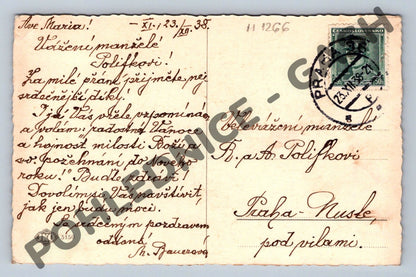 Ave Maria! – XI. 23./XII. 38.
Vážení manželé
Polífkovi!
Za milé přání přijměte nej-
srdečnější díky!
I já Vás přeze vzpomínám
a volám: radostné Vánoce
a hojnost milostí Boží a
sv. Požehnání do Nového
roku! Buďte zdrávi!
Dovolím si Vás navštívit,
jak jen budu moci.
Se srdečným pozdravem
oddaná
M. Bauerová
11 1266
ČESKOSLOVENSKO
PRAHA
23.XII.38
Velevážení manželé
R. a A. Polífkovi
Praha-Nusle,
pod vilami.
POHLEDNICE - GRANDI